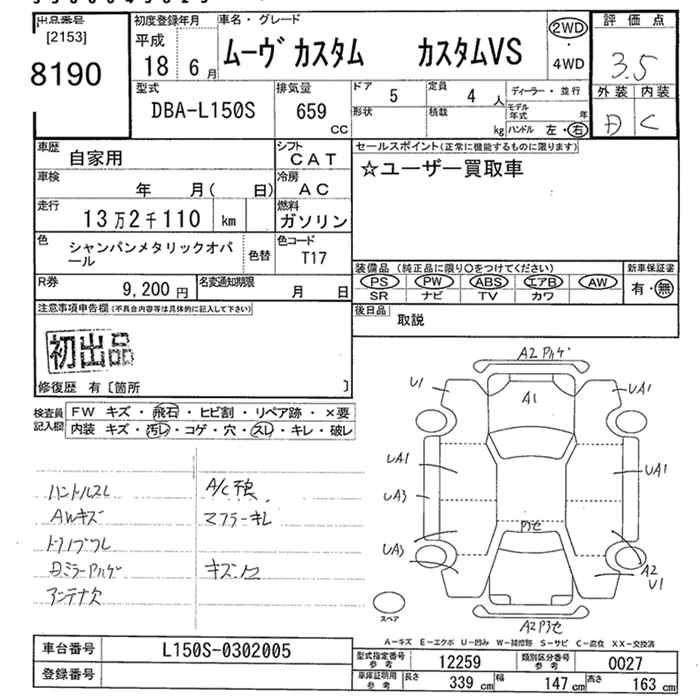 出品番号
[2153]
8190
初度登録年月
平成
18 6月
車名・グレード
ムーヴカスタム カスタムVS
2WD
・
4WD
評価点
3.5
外装 内装
C
型式
DBA-L150S
排気量
659
CC
ドア
5
定員
4人
ディーラー・並行
形状
積載
kg
モデル年式
年
ハンドル 左・右
車歴
自家用
シフト
CAT
車検
年 月( 日)
冷房
AC
走行
13万2千110 km
燃料
ガソリン
色
シャンパンメタリックオパ
ール
色替
色コード
T17
R券
9,200円
名変通知期限
月 日
セールスポイント(正常に機能するものに限ります)
☆ユーザー買取車
装備品(純正品に限り〇をつけてください)
PS PW ABS エアB AW
SR ナビ TV カワ
新車保証書
有・無
後日品
取説
注意事項申告欄(不具合内容等は具体的に記入して下さい)
初出品
修復歴 有〔箇所 〕
検査員
記入欄
FW キズ・飛石・ヒビ割・リペア跡・×要
内装 キズ・汚レ・コゲ・穴・スレ・キレ・破レ
ハンドルスレ
A/C不良
AWキズ
マフラーキレ
ミラーアルゲ
キズ凹
アンテナ欠
A2
U1
A1
UA1
UA1
UA1
UA3
UA3
A2
U1
A2
スペア
A-キズ E-エクボ U-凹み W-補修跡 S-サビ C-腐食 XX-交換済
車台番号
L150S-0302005
登録番号
型式指定番号
参考
12259
類別区分番号
参考
0027
車庫証明用
参考
長さ
339 cm
幅
147 cm
高さ
163 cm